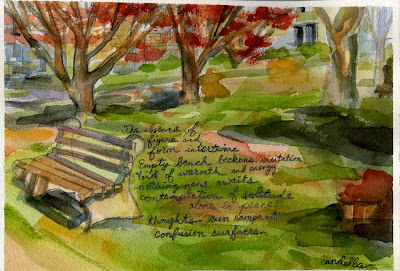 The absence of
figure and
form intertwine
Empty bench beckons visitation
Void of warmth and energy
nothingness waits
contemplation of solitude
alone in peace
thoughts run rampant
confusion surfaces
candella